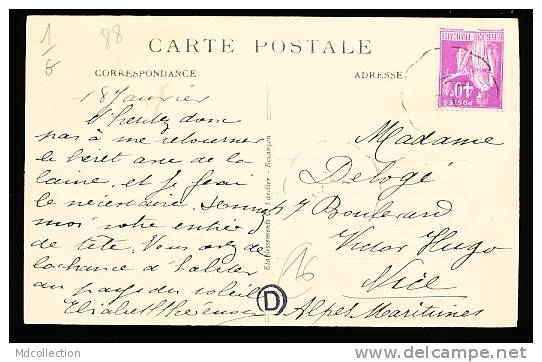 1/6
88
CARTE POSTALE
CORRESPONDANCE
ADRESSE
REPUBLIQUE FRANÇAISE
40c
POSTES
18 Janvier
N'hesitez donc
pas à me retourner
le béret avec de la
laine, et je ferai
le nécessaire. Donnez
moi votre entrée
de tête. Vous avez de
la chance d'habiter
au pays du soleil
Elisabeth
Etablissements C. Lardier - Besançon
D
Madame
Delogé
47 Boulevard
Victor Hugo
Nice
Alpes Maritimes
16
Mdcollection
delcampe.net